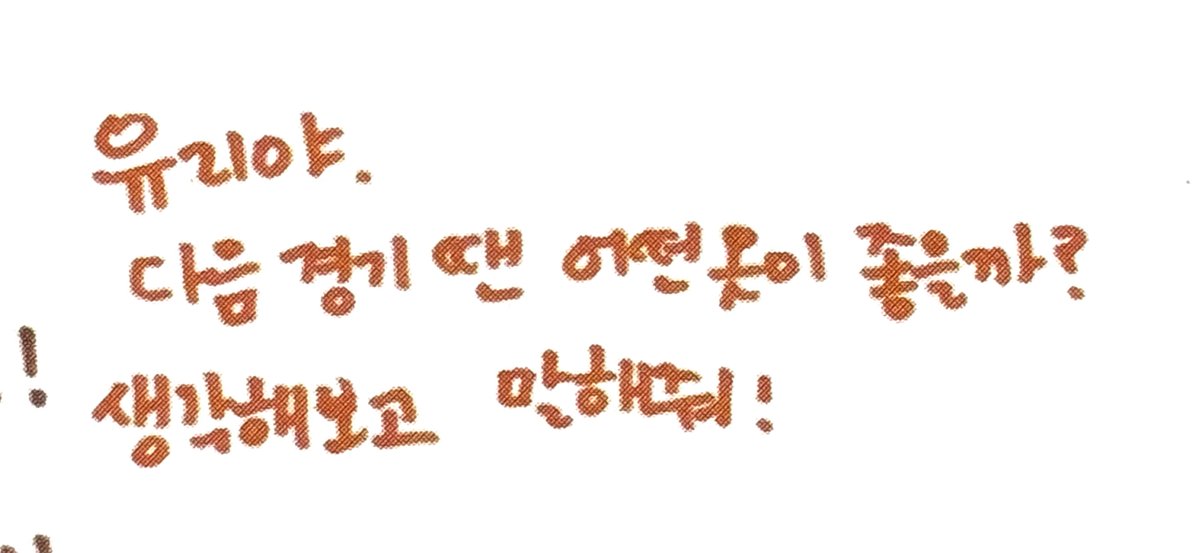 유리야.
다음 경기 땐 어떤 옷이 좋을까?
생각해보고 말해줘!
!